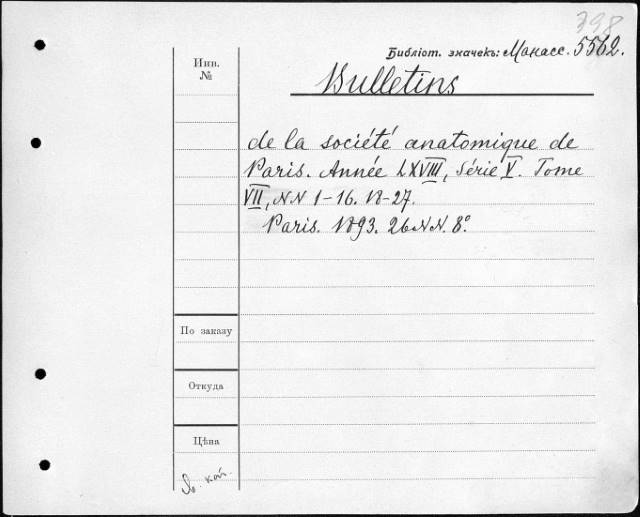 398
Библіот. значекъ: Манасс. 5562.
Инв.
№
Bulletins
de la société anatomique de
Paris. Année LXVIII, Série V. Tome
VII, NN 1-16. 18-27.
Paris. 1893. 26 NN. 8°.
По заказу
Откуда
Цѣна
кат.